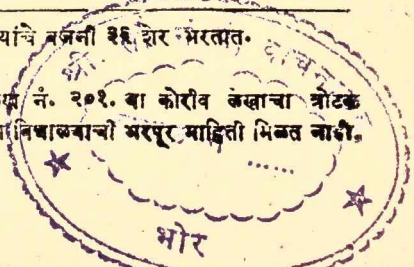 यांचे वजनी ३६ शेर भरतात.
नं. २०१. या कोरीव लेखाचा त्रोटक
भरपूर माहिती मिळत नाही.
श्री.
भोर